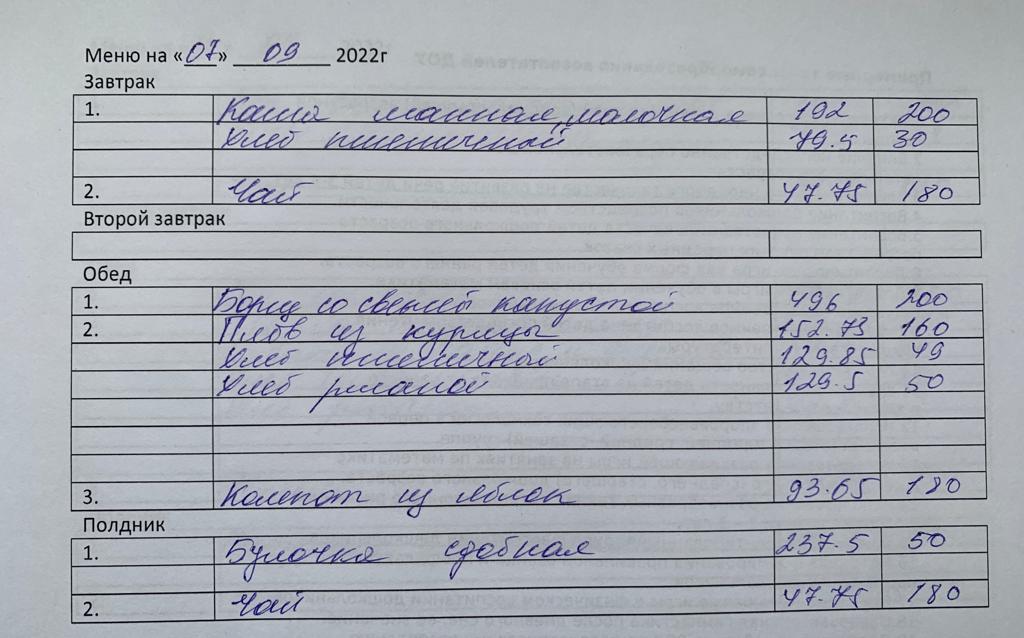 Меню на «07» 09 2022г
Завтрак
1. Каша манная, молочная 192 200
Хлеб пшеничный 79.5 30
2. Чай 47.75 180
Второй завтрак
Обед
1. Борщ со свежей капустой 496 200
2. Плов из курицы 152.73 160
Хлеб пшеничный 129.85 49
Хлеб ржаной 129.5 50
3. Компот из яблок 93.65 180
Полдник
1. Булочка сдобная 237.5 50
2. Чай 47.75 180